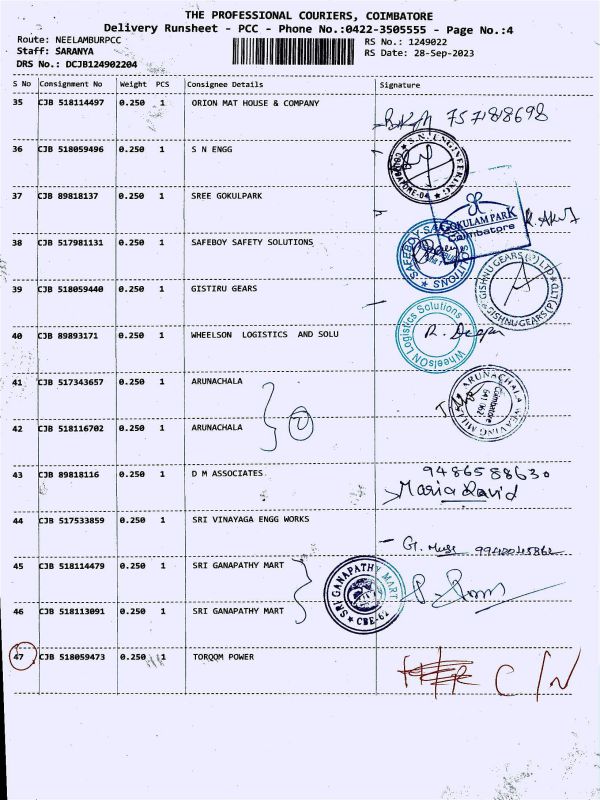 THE PROFESSIONAL COURIERS, COIMBATORE
Delivery Runsheet - PCC - Phone No.:0422-3505555 - Page No.:4
Route: NEELAMBURPCC
RS No.: 1249022
Staff: SARANYA
RS Date: 28-Sep-2023
DRS No.: DCJB124902204
S No Consignment No Weight PCS Consignee Details Signature
35 CJB 518114497 0.250 1 ORION MAT HOUSE & COMPANY
7571881698
36 CJB 518059496 0.250 1 S N ENGG
S.N. ENGINEERING
37 CJB 89818137 0.250 1 SREE GOKULPARK
GOKULAM PARK
Coimbatore
38 CJB 517981131 0.250 1 SAFEBOY SAFETY SOLUTIONS
39 CJB 518059440 0.250 1 GISTIRU GEARS
GISHNU GEARS (P) LTD
40 CJB 89893171 0.250 1 WHEELSON LOGISTICS AND SOLU
WheelsON Logistics Solutions
41 CJB 517343657 0.250 1 ARUNACHALA
ARUNACHALA WEAVING MILL
Coimbatore
42 CJB 518116702 0.250 1 ARUNACHALA
2
43 CJB 89818116 0.250 1 D M ASSOCIATES
9486588630
Maria David
44 CJB 517533859 0.250 1 SRI VINAYAGA ENGG WORKS
45 CJB 518114479 0.250 1 SRI GANAPATHY MART
SRI GANAPATHY MART
CBE-62
46 CJB 518113091 0.250 1 SRI GANAPATHY MART
47 CJB 518059473 0.250 1 TORQOM POWER
C/N